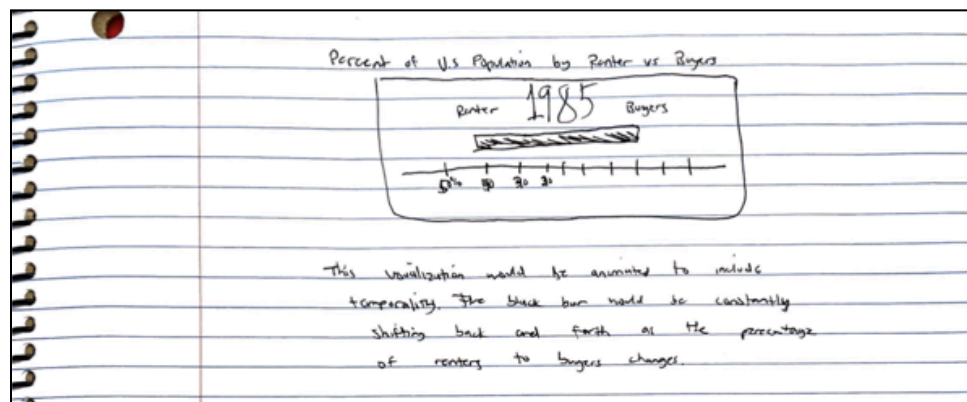 Percent of U.S Population by Renter vs Buyers
1985
Renter Buyers
50% 40 30 20
This visualization would be animated to include
temporality. The black bar would be constantly
shifting back and forth as the percentage
of renters to buyers changes.